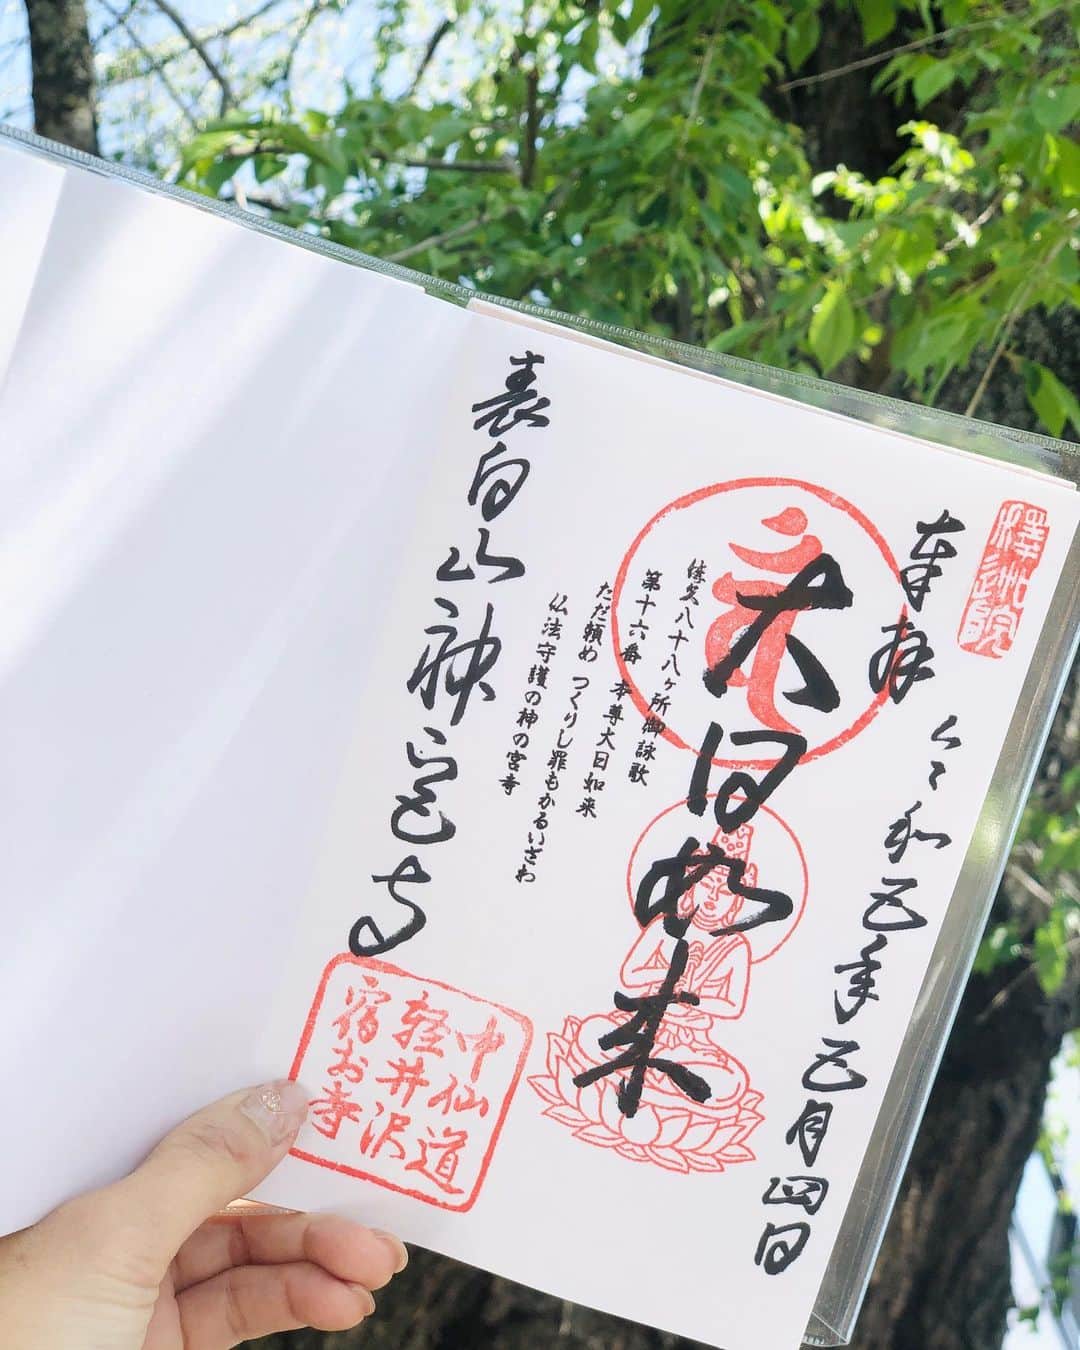 澤泄院
奉拝 令和五年五月四日
大日如来
佐久八十八ヶ所御詠歌
第十六番 本尊大日如来
ただ頼め つくりし罪もかるいざわ
仏法守護の神の宮寺
表白山神宮寺
中仙道
軽井沢
宿お寺